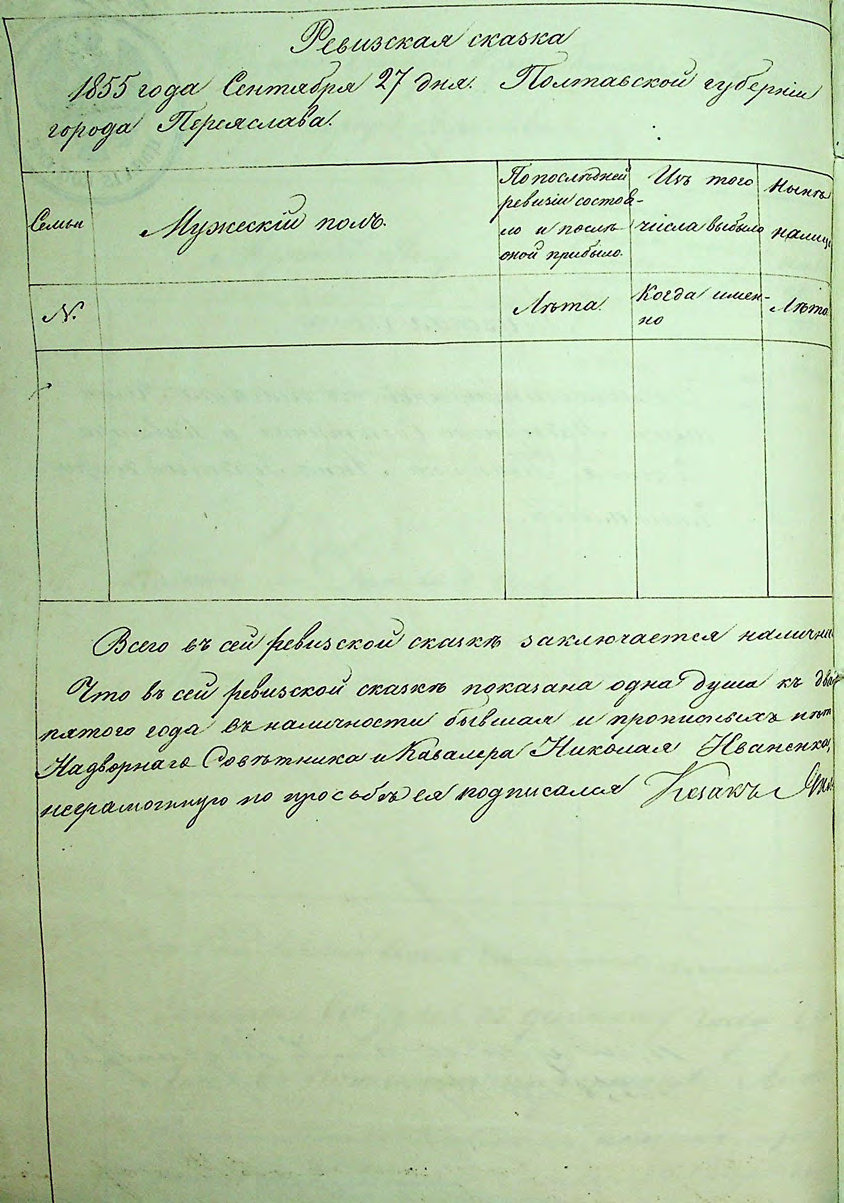 Ревизская сказка
1855 года Сентября 27 дня. Полтавской губернии
города Переяслава.
Семьи
Мужескій полъ.
По послѣдней
ревизіи состоя-
ло и послѣ
оной прибыло.
Изъ того
числа выбыло
Нынѣ
налицо
N.
Лѣта.
Когда имен-
но
Лѣта
Всего въ сей ревизской сказкѣ заключается налични
Что въ сей ревизской сказкѣ показана одна душа къ два
пятого года въ наличности бывшая и прописныхъ нѣт
Надворнаго Совѣтника и Кавалера Николая Иваненка,
неграмотную по просьбѣ ея подписался Козакъ